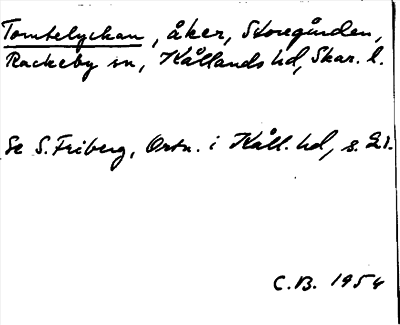 Tomtelyckan, åker, Storegården,
Rackeby sn, Kållands hd, Skar. l.
Se S. Friberg, Ortn. i Kåll. hd, s. 21.
C.B. 1954